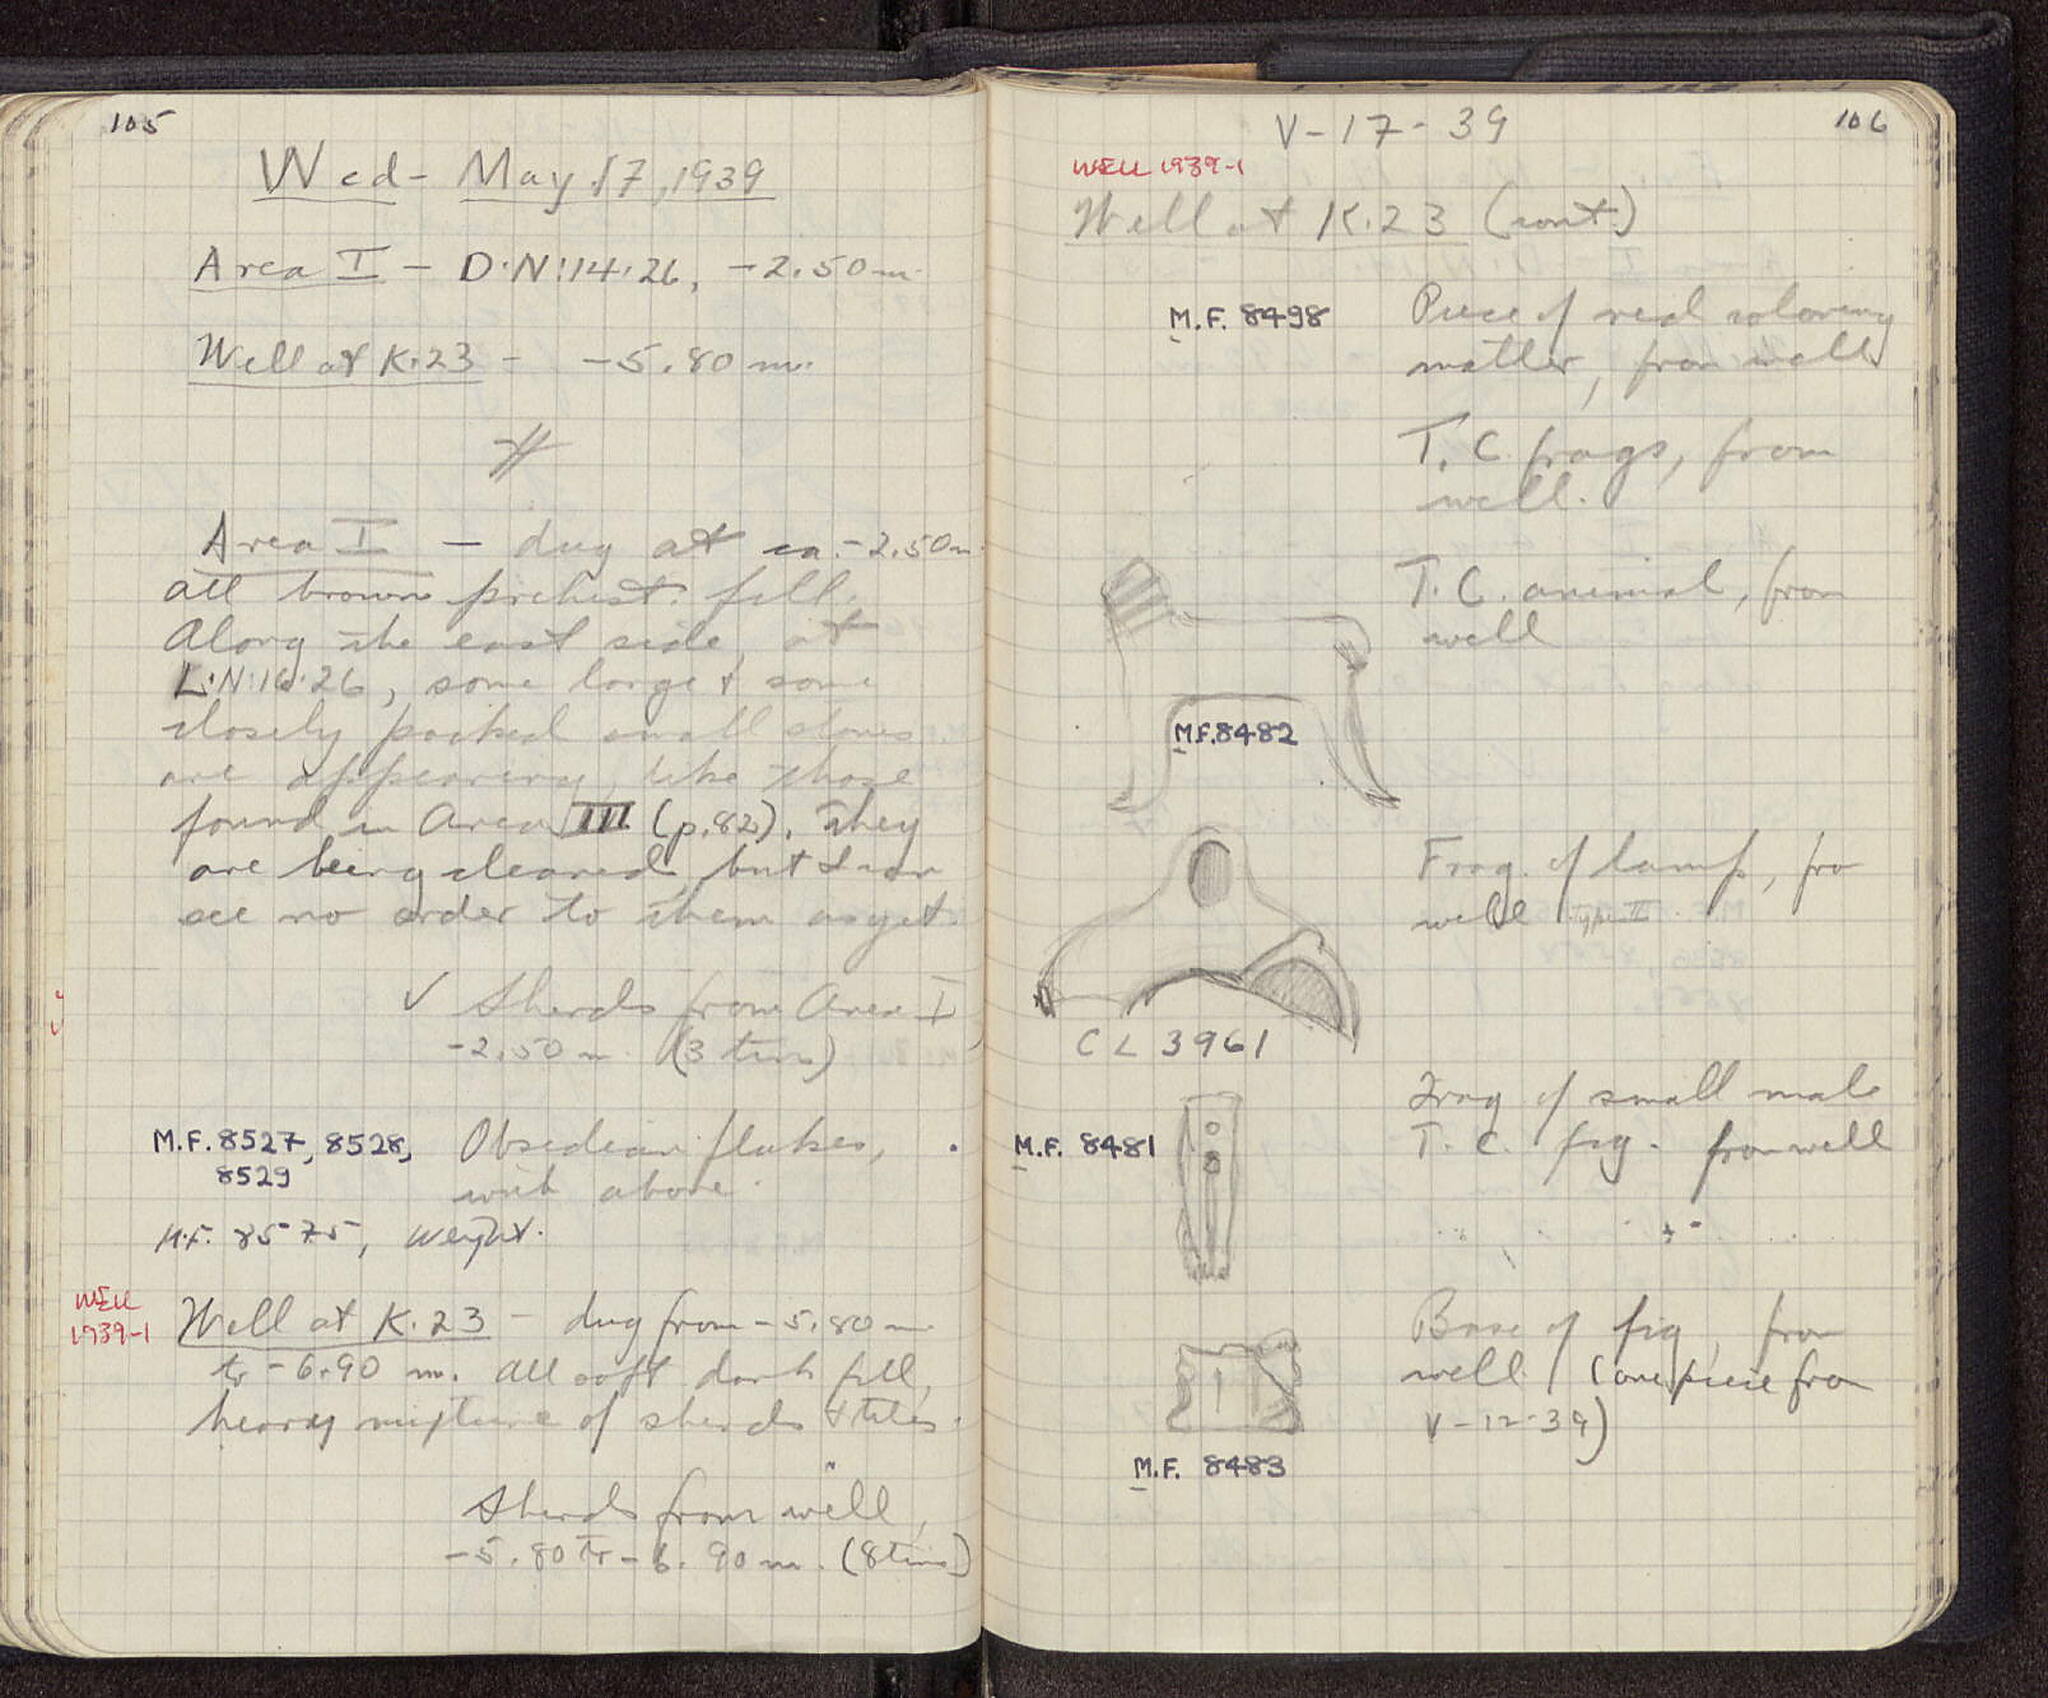 105
Wed - May 17, 1939
Area I - D:N:14:26, -2.50 m.
Well at K:23 - -5.80 m.
Area I - dug at ca. -2.50 m.
all brown prehist. fill.
Along the east side, at
L:N:16:26, some large & some
closely packed small stones
are appearing, like those
found in Area III (p.82). They
are being cleared, but I can
see no order to them as yet.
✓ Sherds from Area I
-2.50 m. (3 tins)
M.F. 8527, 8528, Obsidian flakes,
8529 with above.
M.F. 8575, Weight.
WELL
1939-1
Well at K:23 - dug from -5.80 m
to -6.90 m. All soft dark fill,
heavy mixture of sherds & tiles.
Sherds from well,
-5.80 to -6.90 m. (8 tins)
V-17-39
106
WELL 1939-1
Well at K:23 (cont.)
M.F. 8498 Piece of red coloring
matter, from well
T.C. frags, from
well.
T.C. animal, from
well
M.F. 8482
Frag. of lamp, fro
well Type II
CL 3961
Frag of small male
M.F. 8481 T.C. fig. from well
Base of fig, from
well (one piece from
V-12-39)
M.F. 8483